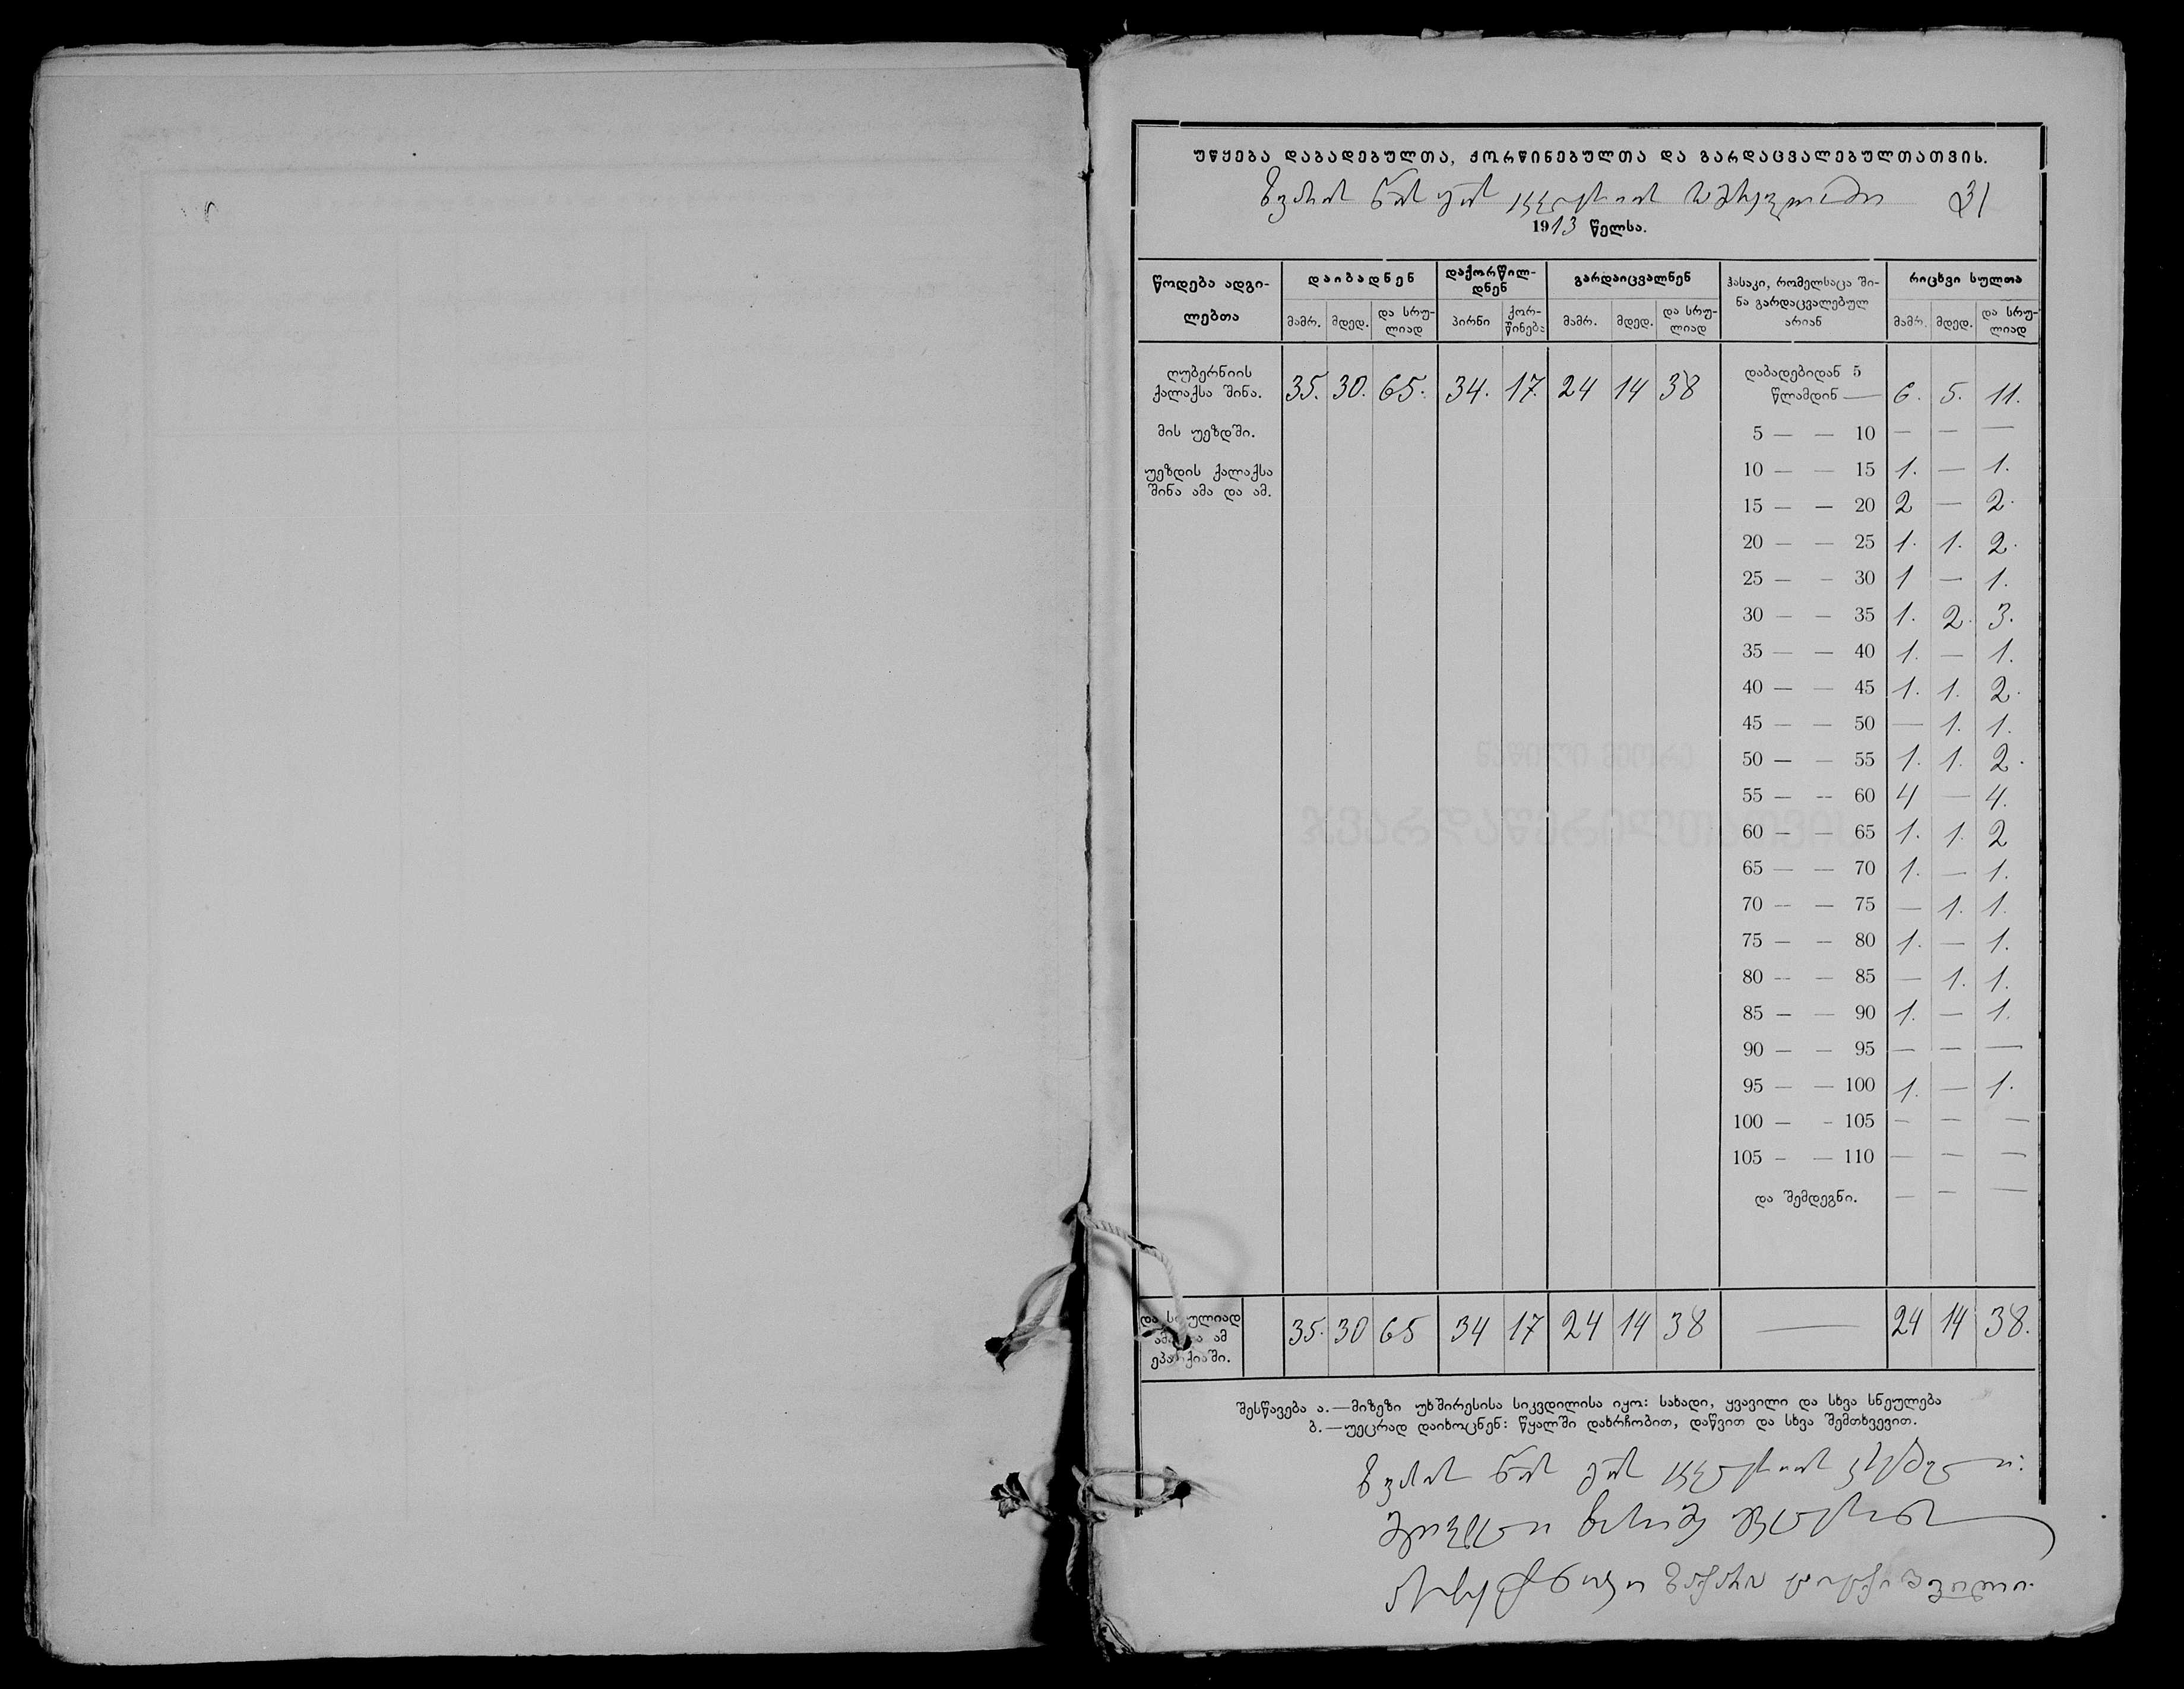 უწყება დაბადებულთა, ქორწინებულთა და გარდაცვალებულთათვის.
31
1913 წელსა.
წოდება ადგი-ლებთა | დაიბადნენ | დაქორწილ-დნენ | გარდაიცვალნენ | ჰასაკი, რომელსაცა ში-ნა გარდაცვალებულ არიან | რიცხვი სულთა
მამრ. | მდედ. | და სრუ-ლიად | პირნი | ქორ-წინება | მამრ. | მდედ. | და სრუ-ლიად | მამრ. | მდედ. | და სრუ-ლიად
ღუბერნიის ქალაქსა შინა. | 35. | 30. | 65. | 34. | 17. | 24 | 14 | 38 | დაბადებიდან 5 წლამდინ — | 6. | 5. | 11.
მის უეზდში. | 5 — — 10 | — | — | —
უეზდის ქალაქსა შინა ამა და ამ. | 10 — — 15 | 1. | — | 1.
15 — — 20 | 2 | — | 2.
20 — — 25 | 1. | 1. | 2.
25 — — 30 | 1 | — | 1.
30 — — 35 | 1. | 2. | 3.
35 — — 40 | 1. | — | 1.
40 — — 45 | 1. | 1. | 2.
45 — — 50 | — | 1. | 1.
50 — — 55 | 1. | 1. | 2.
55 — — 60 | 4 | — | 4.
60 — — 65 | 1. | 1. | 2
65 — — 70 | 1. | — | 1.
70 — — 75 | — | 1. | 1.
75 — — 80 | 1. | — | 1.
80 — — 85 | — | 1. | 1.
85 — — 90 | 1. | — | 1.
90 — — 95 | — | — | —
95 — — 100 | 1. | — | 1.
100 — - 105 | — | — | —
105 - — 110 | — | — | —
და შემდეგნი. | — | — | —
და სრულიად ამა და ამ ეპარქიაში. | 35. | 30 | 65 | 34 | 17 | 24 | 14 | 38 | — | 24 | 14 | 38.
შესწავება ა.—მიზეზი უხშირესისა სიკვდილისა იყო: სახადი, ყვავილი და სხვა სნეულება
ბ.—უეცრად დაიხოცნენ: წყალში დახრჩობით, დაწვით და სხვა შემთხვევით.